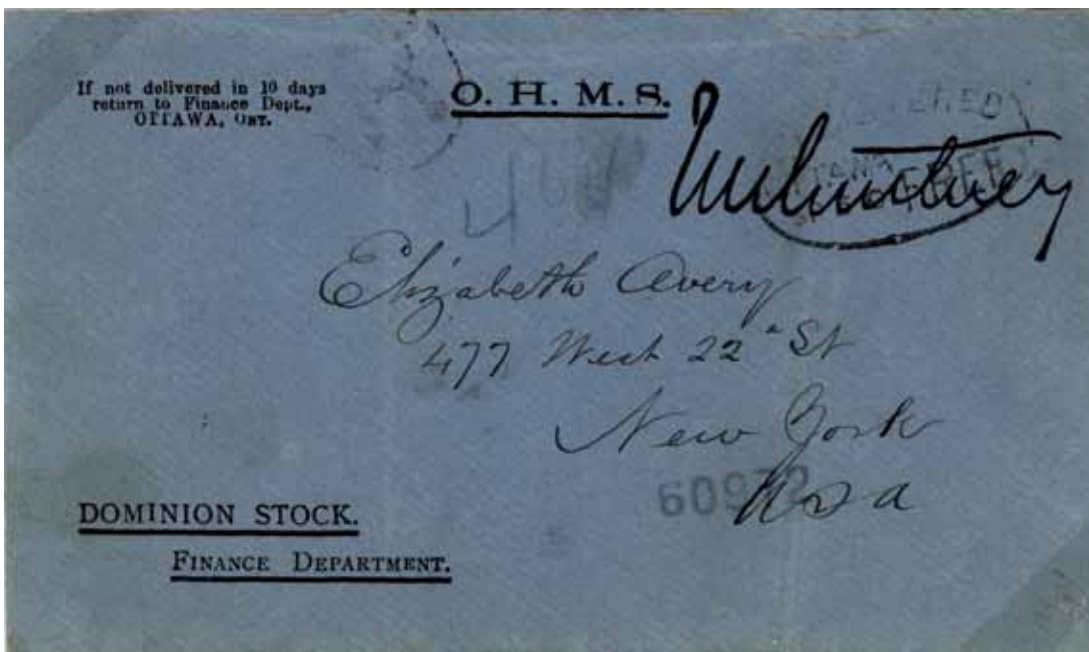 If not delivered in 10 days
return to Finance Dept.,
OTTAWA, ONT.
O. H. M. S.
FREE
Elizabeth Avery
477 West 22d St
New York
USA
DOMINION STOCK.
FINANCE DEPARTMENT.